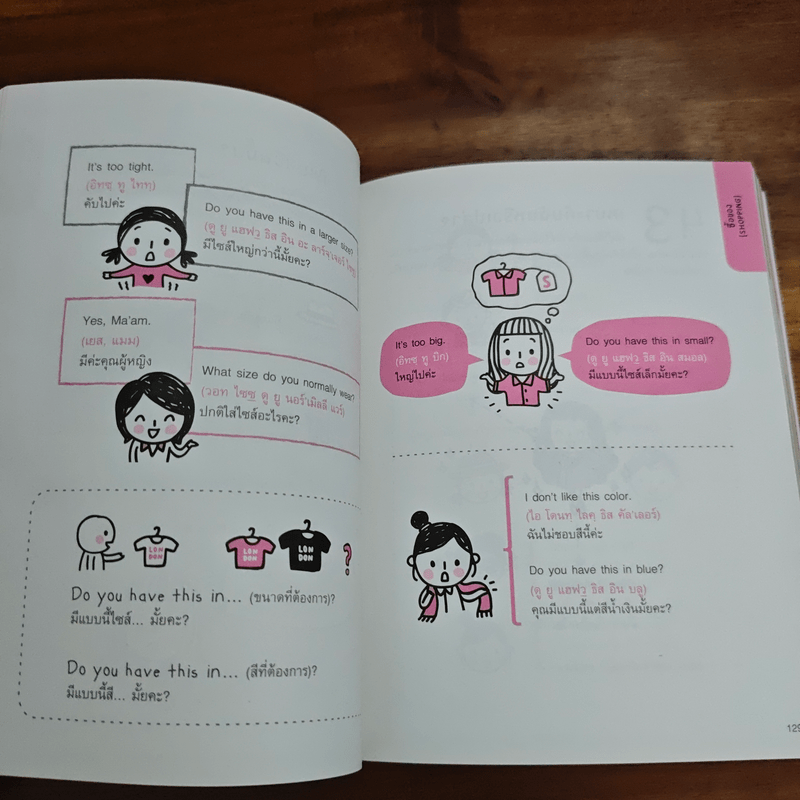 It's too tight.
(อิทซฺ ทู ไททฺ)
คับไปค่ะ
Do you have this in a larger size?
(ดู ยู แฮฟวฺ ธิส อิน อะ ลาร์จฺ'เจอร์ ไซซฺ)
มีไซส์ใหญ่กว่านี้มั้ยคะ?
Yes, Ma'am.
(เยส, แมม)
มีค่ะคุณผู้หญิง
What size do you normally wear?
(วอท ไซซฺ ดู ยู นอร์'เมิลลี แวร์)
ปกติใส่ไซส์อะไรคะ?
LON
DON
LON
DON
LON
DON
?
Do you have this in... (ขนาดที่ต้องการ)?
มีแบบนี้ไซส์... มั้ยคะ?
Do you have this in... (สีที่ต้องการ)?
มีแบบนี้สี... มั้ยคะ?
ซื้อของ
(SHOPPING)
S
It's too big.
(อิทซฺ ทู บิก)
ใหญ่ไปค่ะ
Do you have this in small?
(ดู ยู แฮฟวฺ ธิส อิน สมอล)
มีแบบนี้ไซส์เล็กมั้ยคะ?
I don't like this color.
(ไอ โดนทฺ ไลคฺ ธิส คัล'เลอร์)
ฉันไม่ชอบสีนี้ค่ะ
Do you have this in blue?
(ดู ยู แฮฟวฺ ธิส อิน บลู)
คุณมีแบบนี้แต่สีน้ำเงินมั้ยคะ?
129